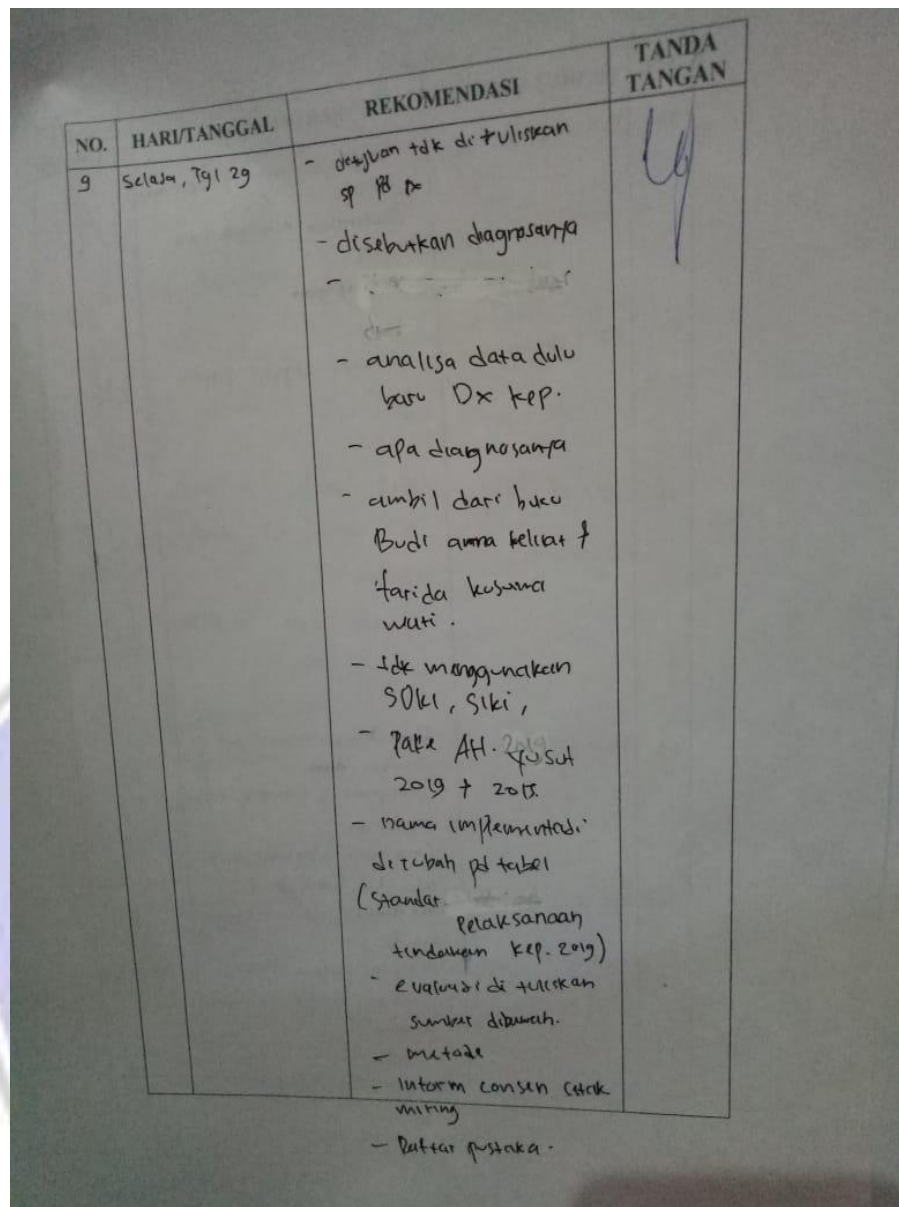 NO. HARI/TANGGAL REKOMENDASI TANDA TANGAN
9 Selasa, Tgl 29
- tdk dituliskan
sp pd Dx
- disebutkan diagnosanya
-
- analisa data dulu
baru Dx kep.
- apa diagnosanya
- ambil dari buku
Budi anna keliat &
farida kusuma
wati.
- tdk menggunakan
SDKI, SIKI,
- Pake AH. Yusuf
2019 + 2015.
- nama implementasi
dirubah pd tabel
(Standar
Pelaksanaan
tindakan kep. 2019)
- evaluasi di tuliskan
sumber dibawah.
- metode
- Inform consen cetak
miring
- Daftar pustaka.